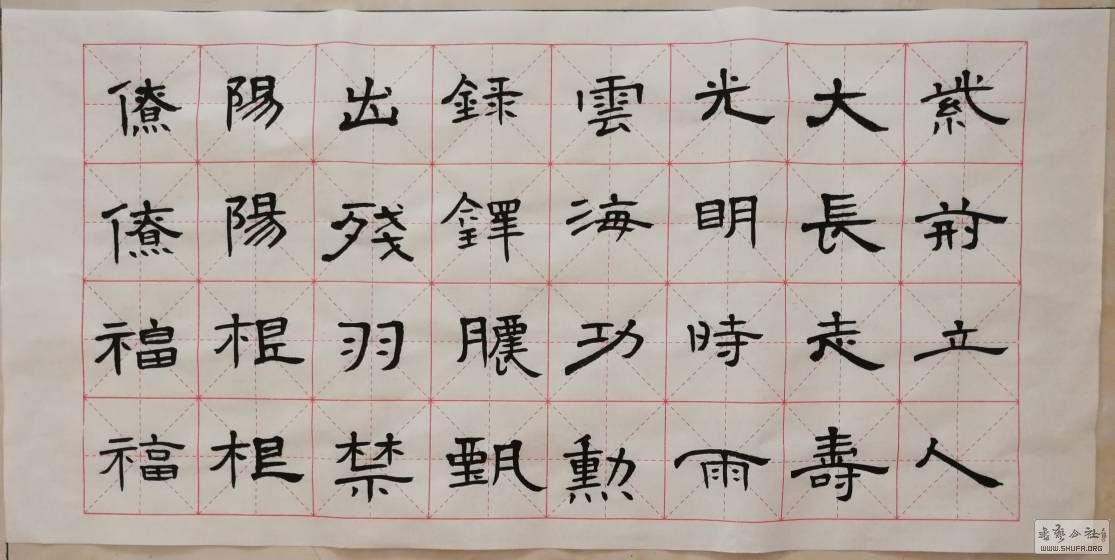 紫荊立人
大長走壽
光明時雨
雲海功勳
錄鐸甄
出殘羽禁
陽陽根根
僚僚福福
书艺公社
WWW.SHUFA.ORG